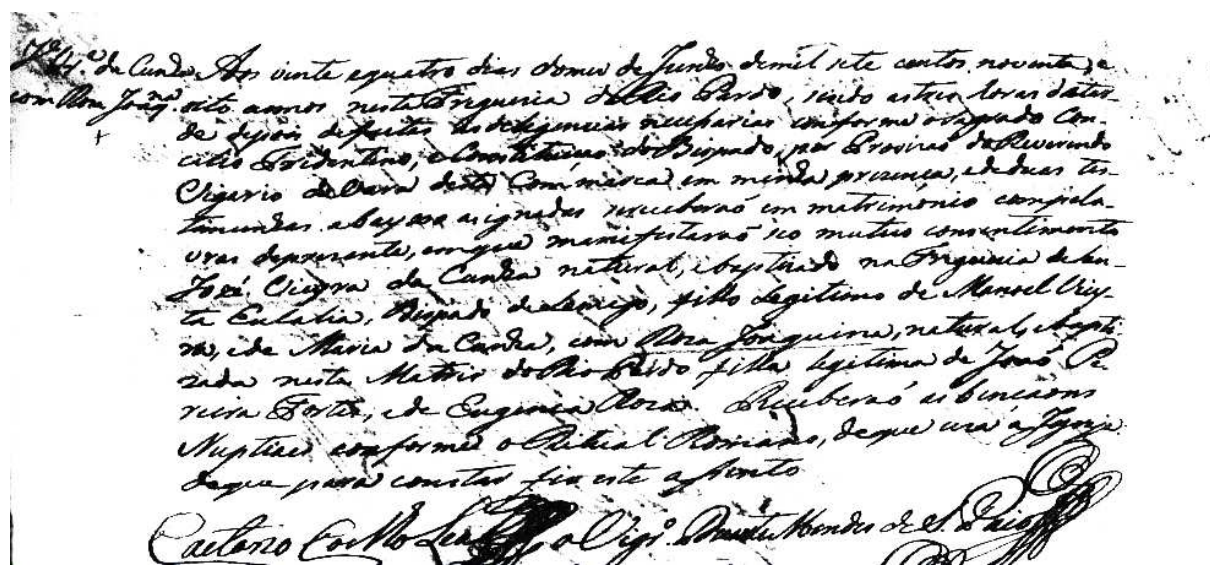 Jᵉ Vᵃ da Cunha Aos vinte equatro dias domes de Junho demil sete centos noventa, e
com Roza Joaqⁿᵃ oito annos nesta Freguezia do Rio Pardo, sendo as tres horas datar-
de depois defeitas as deligencias necessarias conforme o sagrado Con-
cilio Tridentino, e Constituiçao do Bispado, por Provizao do Reverendo
Vigario da Vara desta Commarca em minha prezença, e deduas tes-
temunhas abayxo asignadas receberaó em matrimónio com pala-
vras deprezente, emque manifestaraó seo mutuo consentimento
José Vieyra da Cunha natural, e baptizado na Freguezia de San-
ta Eulalia, Bispado de Lamego, filho legitimo de Manoel Viey-
ra, e de Maria da Cunha, com Roza Joaquina, natural, e bapti-
zada nesta Matriz do Rio Pardo filha legitima de Joaó Pe-
reira Fortes, e de Eugenia Roza. Receberaó as bençaons
Nupciaes conforme o Ritual Romano, de que uza a Igreja
deque para constar fiz este assento
Caetano Coelho Leal o Vigrº